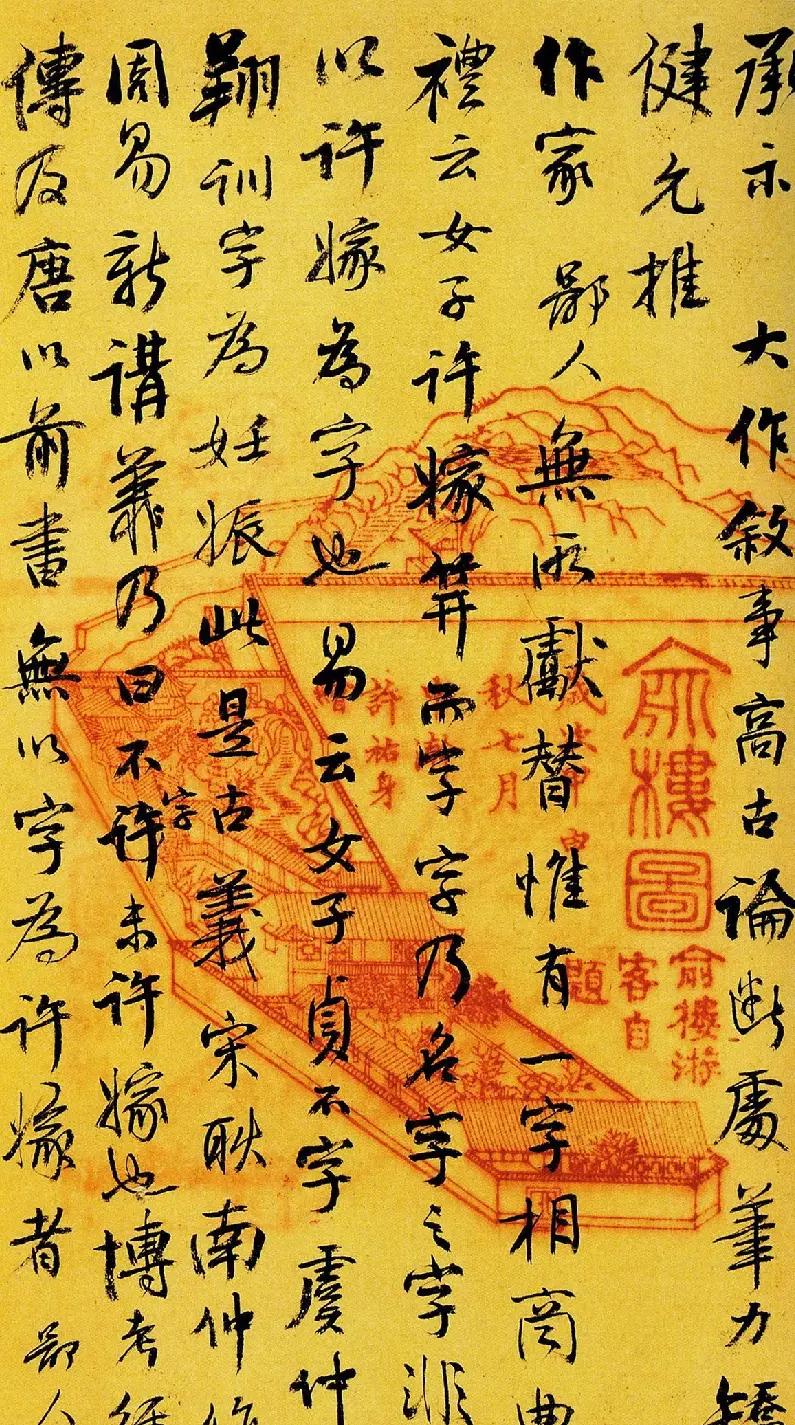 承示　大作敘事高古論斷處筆力矯
健允推
作家　鄙人無所獻替惟有一字相商曲
禮云女子許嫁筓而字字乃名字之字非
以許嫁為字也易云女子貞不字虞仲
翔訓字為妊娠此是古義宋耿南仲作
周易新講義乃曰不許字未許嫁也博考經
傳及唐以前書無以字為許嫁者鄙人
俞樓圖
俞樓游
客自
題
秋七月
許祐身